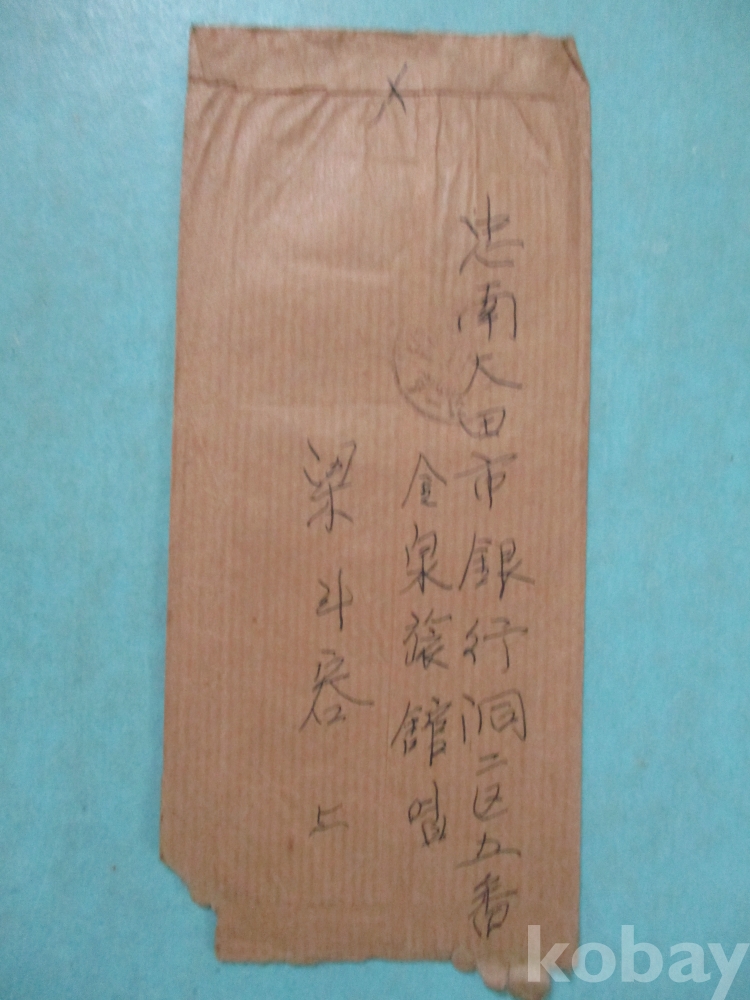 忠南大田市銀行洞二区五番
金泉旅館
梁斗容 上
kobay